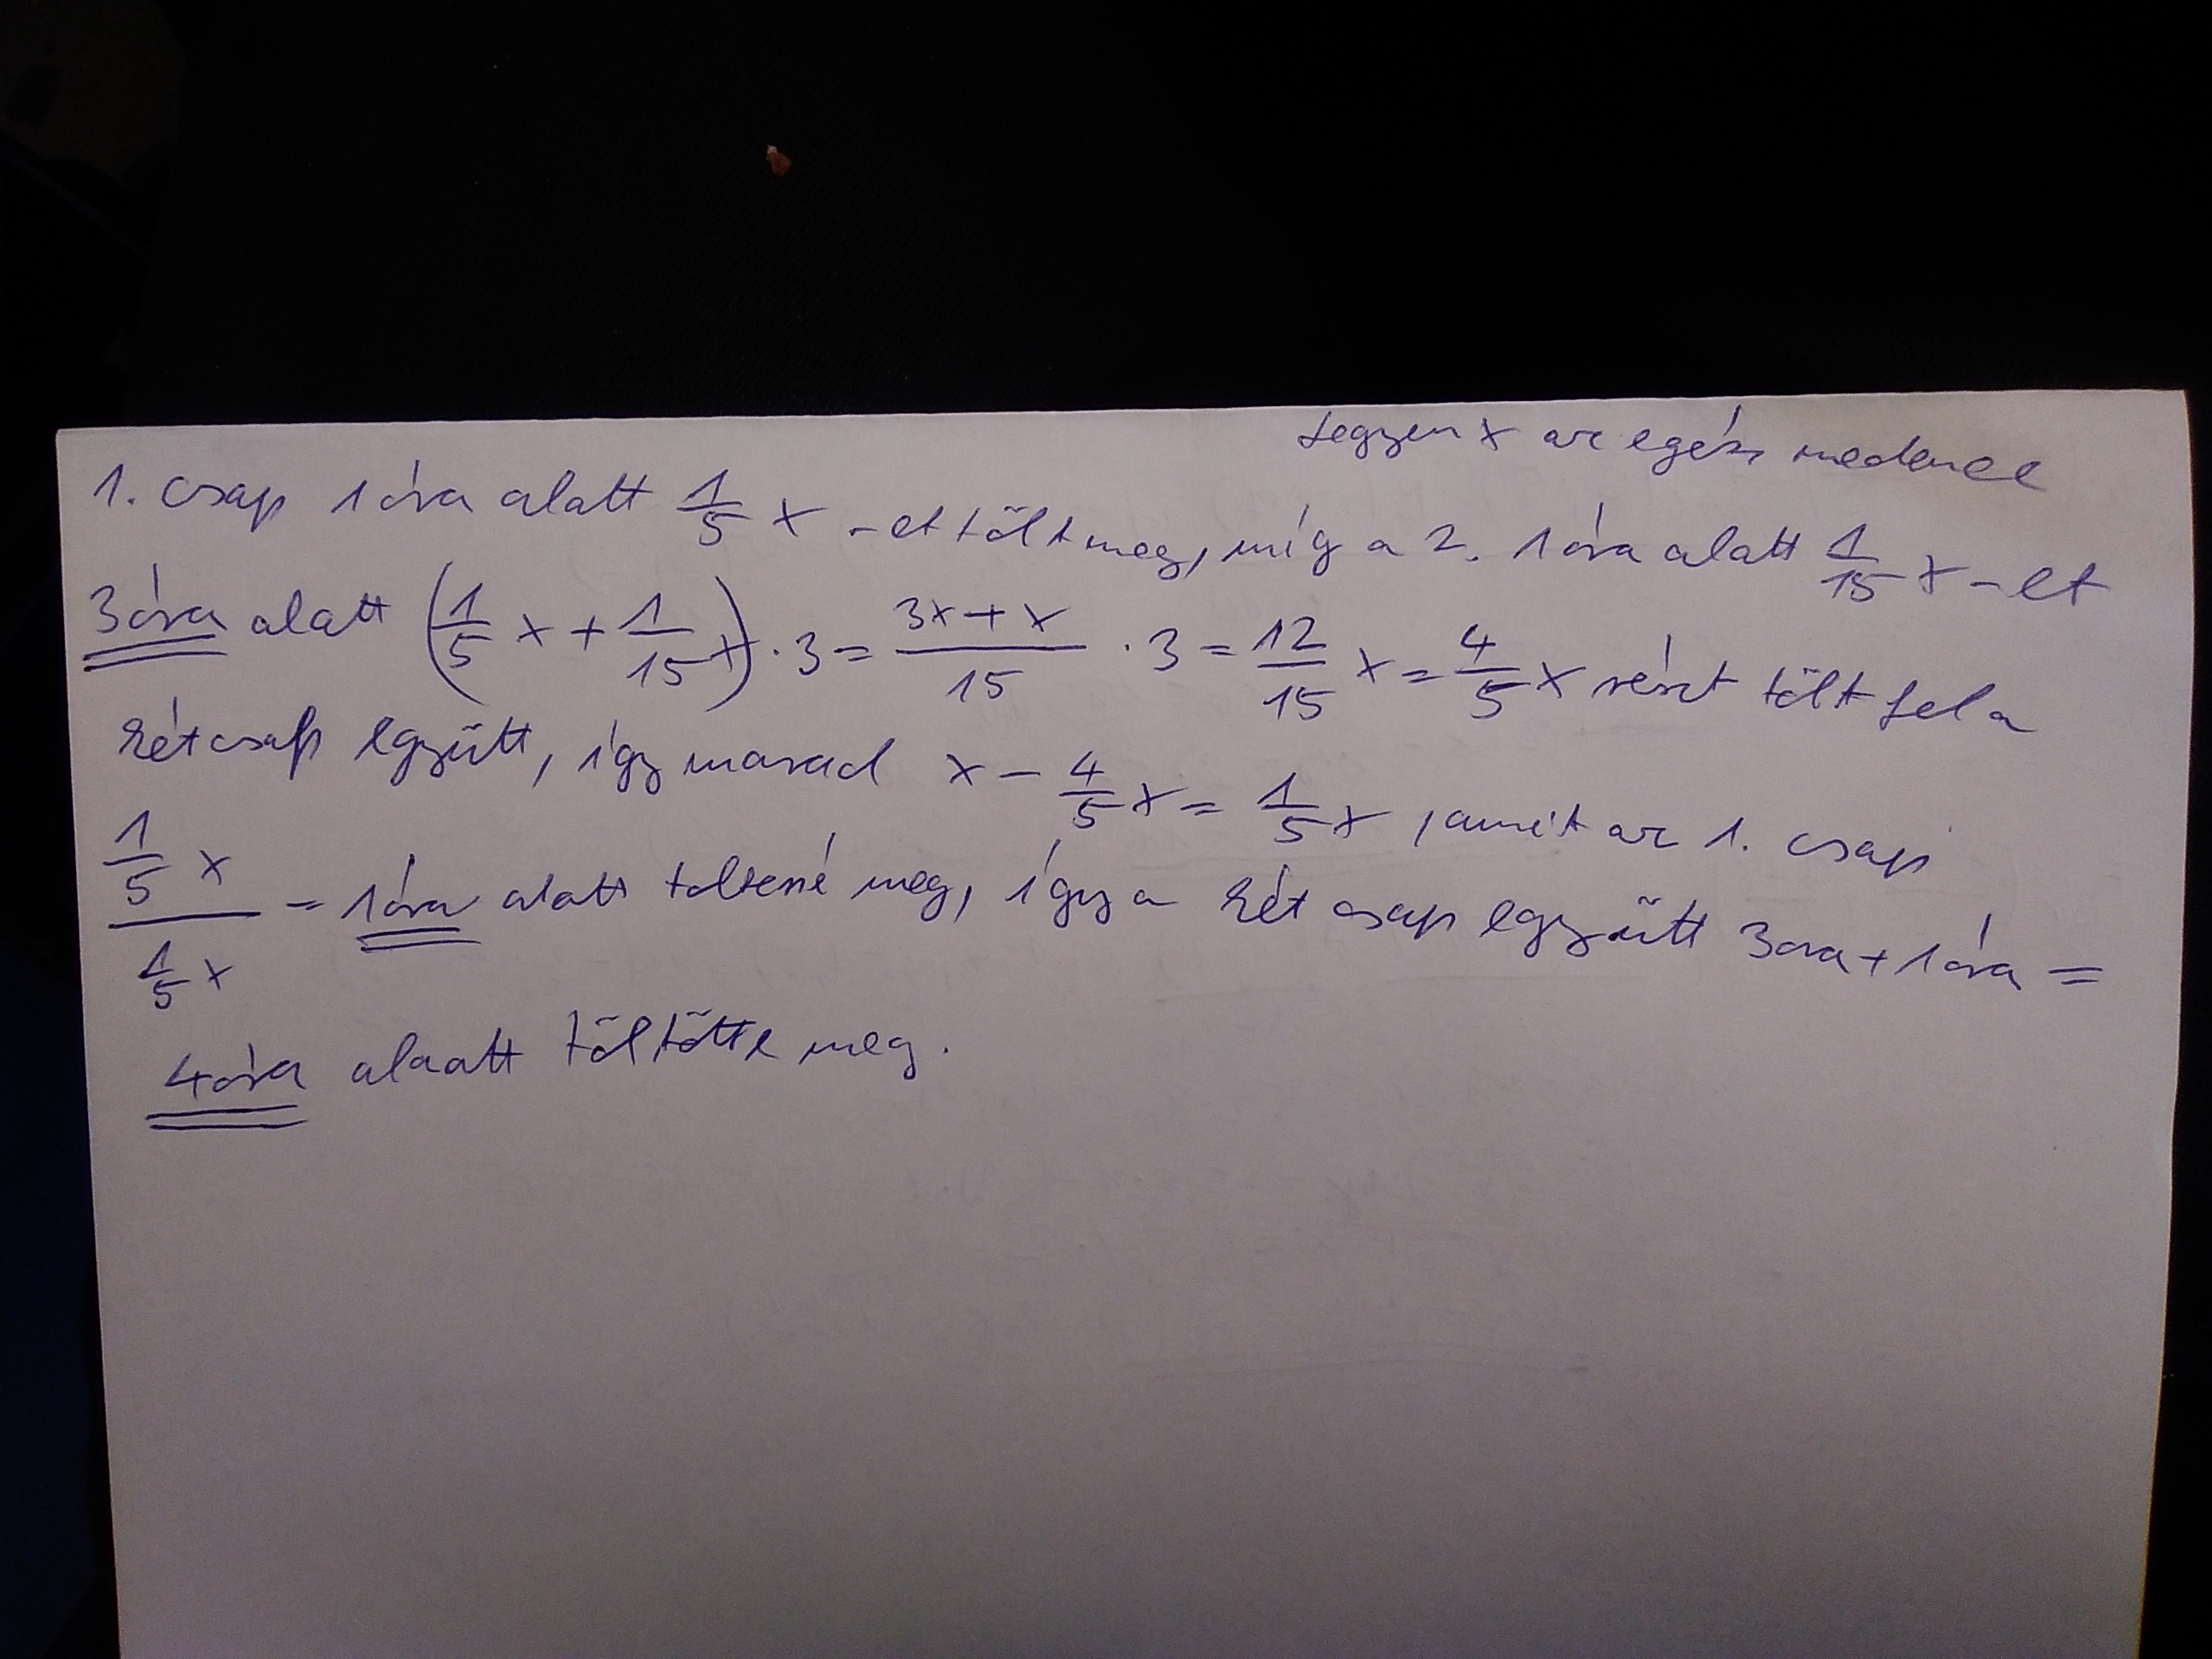 Legyen x az egész medence
1. csap 1 óra alatt 1/5 x -et tölt meg, míg a 2. 1 óra alatt 1/15 x-et
3 óra alatt (1/5 x + 1/15 x) · 3 = (3x + x)/15 · 3 = 12/15 x = 4/5 x részt tölt fel a
két csap együtt, így marad x - 4/5 x = 1/5 x , amit az 1. csap
(1/5 x)/(1/5 x) = 1 óra alatt töltené meg, így a két csap együtt 3 óra + 1 óra =
4 óra alaatt töltötte meg.